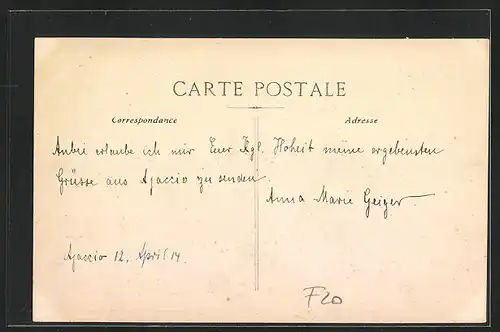 CARTE POSTALE
Correspondance
Adresse
Anbei erlaube ich mir Euer Kgl. Hoheit meine ergebensten
Grüsse aus Ajaccio zu senden.
Anna Marie Geiger.
Ajaccio 12. April 14.
F20